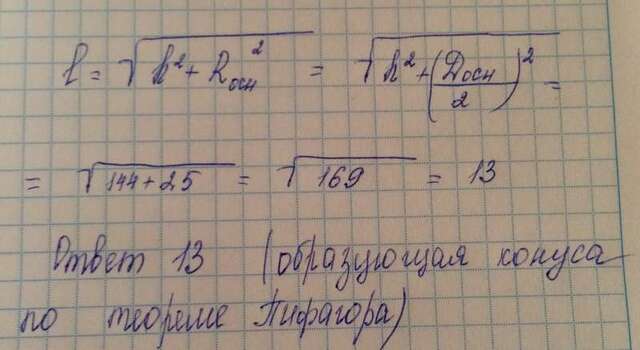 l = √(h² + Rосн²) = √(h² + (Dосн/2)²) =
= √(144 + 25) = √(169) = 13
Ответ 13 (образующая конуса
по теореме Пифагора)